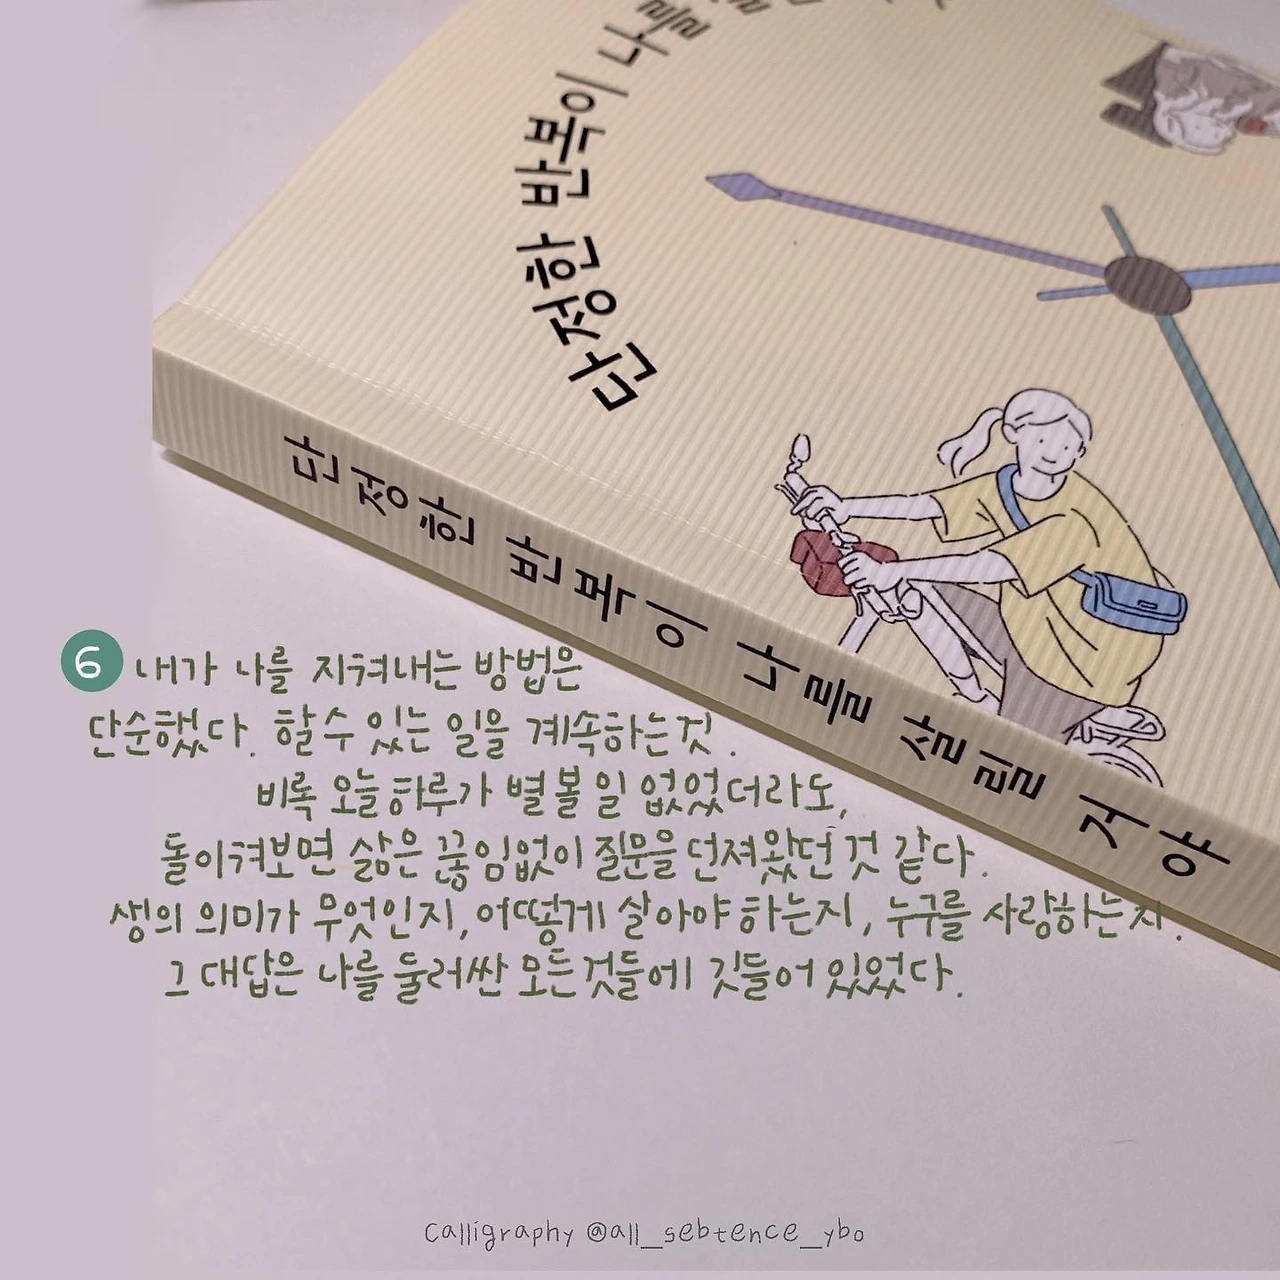 단정한 반복이 나를
단정한 반복이 나를 살릴 거야
6 내가 나를 지켜내는 방법은
단순했다. 할 수 있는 일을 계속하는것.
비록 오늘 하루가 별 볼 일 없었더라도,
돌이켜보면 삶은 끊임없이 질문을 던져왔던 것 같다.
생의 의미가 무엇인지, 어떻게 살아야 하는지, 누구를 사랑하는지.
그 대답은 나를 둘러싼 모든것들에 깃들어 있었다.
Calligraphy @all_sebtence_ybo